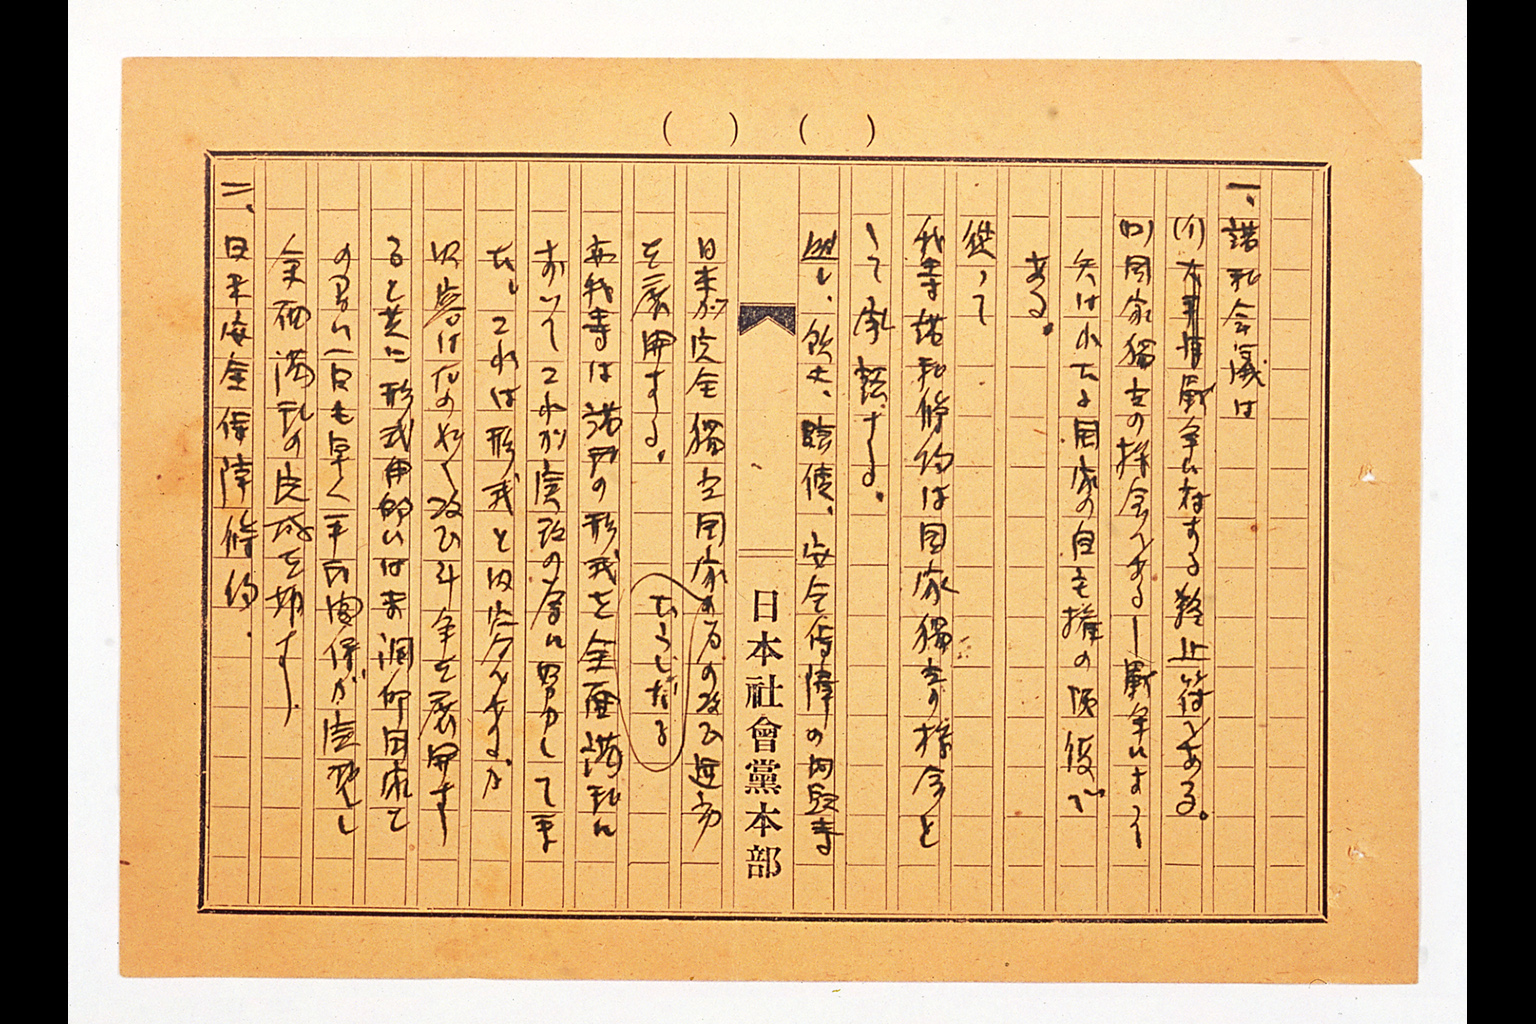 一、講和会議は
(イ)太平洋戦争に対する終止符である。
(ロ)国家独立の機会である―戦争によっ
失はれたる国家の自主権の恢復で
ある。
従って
我等講和條約は国家独立の機会と
して承認する。
し、安全保障の
日本社會黨本部
日本が完全独立国家の為の政治運動
を展開する。
たうしたる
尚我等は講和の形式を全面講和に
おいてこれが実現の為に努力して来
た。これは形式と内容
政治斗争を展開す
ると共に形式的には未調印国家と
の間に一日も早く平和関係が実現し
全面講和の完成を期す。
二、日米安全保障條約.